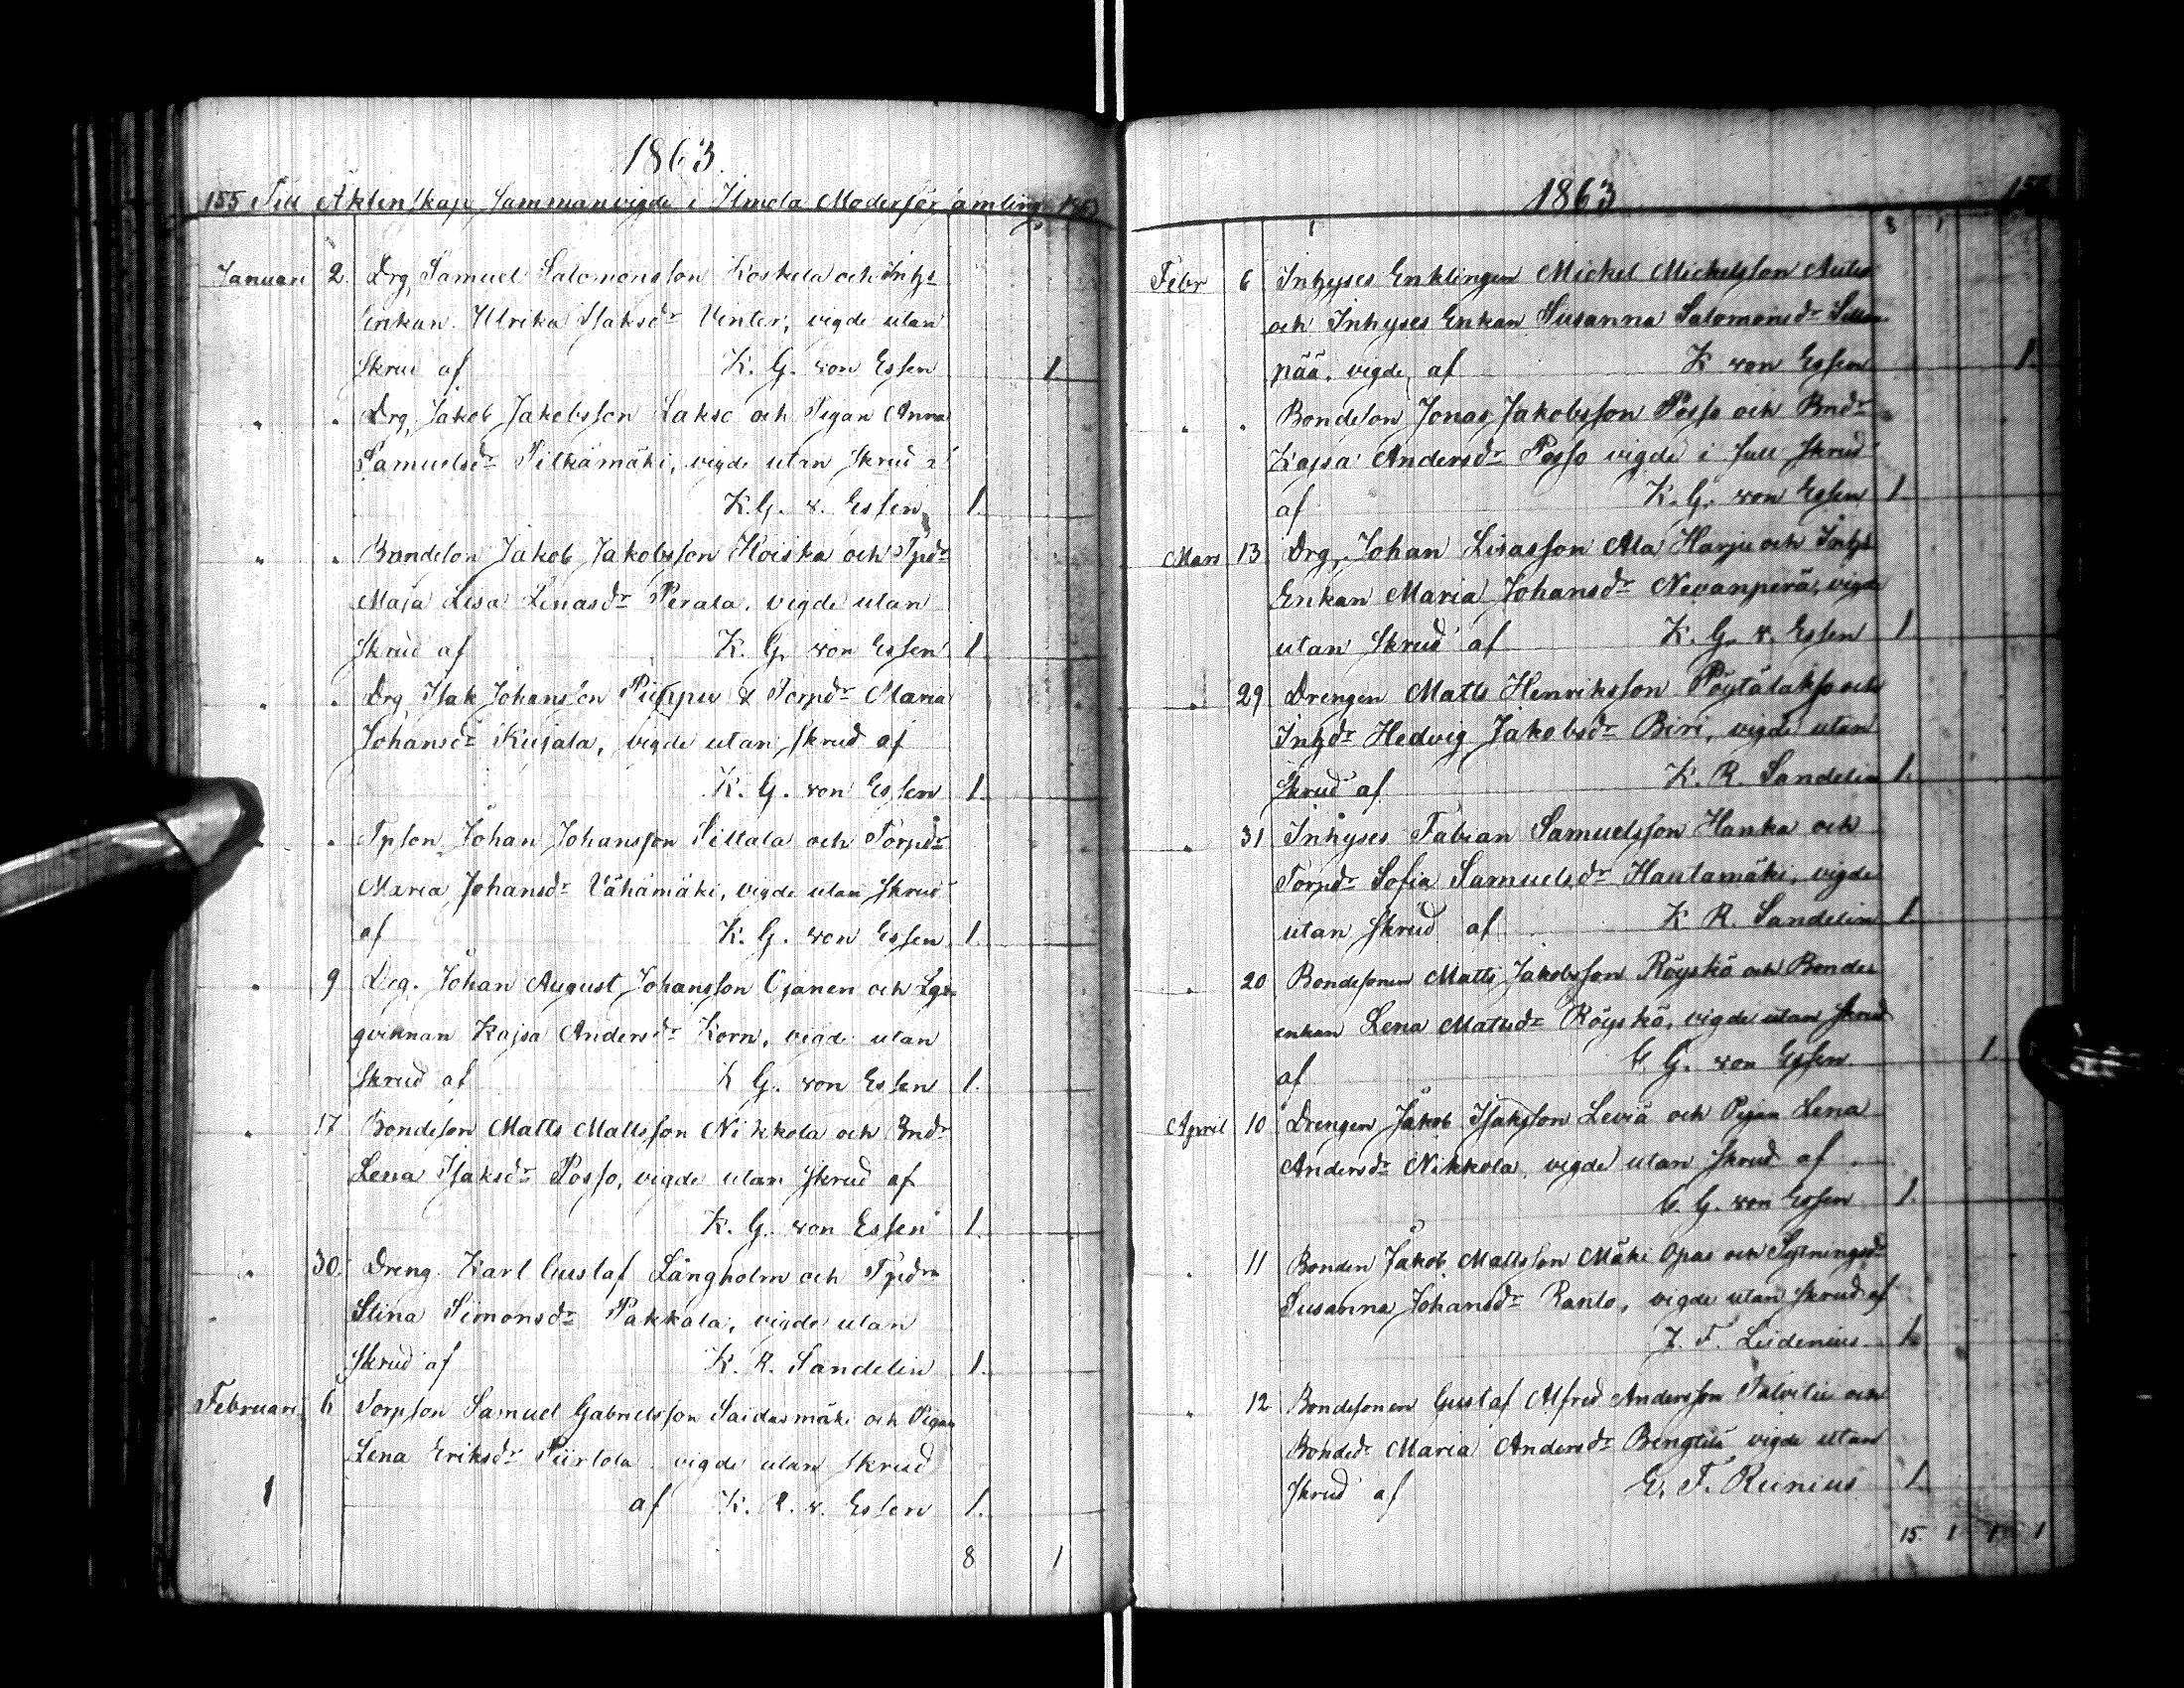 1863.
155 Till Äktenskap Sammanvigde i Ilmola Moderförsamling 1863
Januari 2. Drg Samuel Salomonsson Koskela och Inhs
enkan Ulrika Isaksdr Venter, vigde utan
Skrud af K. G. von Essen 1.
" " Drg Jakob Jakobsson Lakso och Pigan Anna
Samuelsdr Pilkämäki, vigde utan skrud af
K. G. v. Essen 1.
" " Bondeson Jakob Jakobsson Hoiska och Tpdr
Maja Lisa Lenasdr Perala, vigde utan
Skrud af K. G. von Essen 1.
" " Drg Isak Johansson Piippu & Torpdr Maria
Johansdr Kujala, vigde utan skrud af
K. G. von Essen 1.
" " Tpson Johan Johansson Sillala och Torpdr
Maria Johansdr Vähämäki, vigde utan skrud
af K. G. von Essen 1.
" 9 Drg. Johan August Johansson Ojanen och
qvinnan Kajsa Andersdr Korn, vigde utan
Skrud af K G. von Essen 1.
" 17 Bondeson Matts Mattsson Nikkola och Bndr
Lena Isaksdr Posso, vigde utan skrud af
K. G. von Essen 1.
" 30. Dreng Karl Gustaf Långholm och Tpdr
Stina Simonsdr Pakkala, vigde utan
skrud af K. R. Sandelin 1.
Februari 6 Torpson Samuel Gabrielsson Saidasmäki och Pigan
Lena Eriksdr Piirtola vigde utan skrud
1 af K. R. v. Essen 1.
8 1
1863
8 1
Febr 6 Inhyses Enklingen Mickel Mickelsson Autio
och Inhyses Enkan Susanna Salomonsdr Sillan
pää, vigde, af K von Essen 1.
" " Bondeson Jonas Jakobsson Posso och Bndr
Kajsa Andersdr Posso vigde i full skrud
af K. G. von Essen 1.
Mars 13 Drg. Johan Lisasson Ala Harju och Inhs
Enkan Maria Johansdr Nevanperä, vigde
utan skrud af K. G. v. Essen 1
" 29 Drengen Matts Henriksson Pöytälakso och
Inhdr Hedvig Jakobsdr Biri, vigde utan
Skrud af K. R. Sandelin 1.
" 31 Inhyses Fabian Samuelsson Hanka och
Torpdr Sofia Samuelsdr Hautamäki, vigde
utan skrud af K R. Sandelin 1.
" 20 Bondesonen Matts Jakobsson Röyskö och Bonde
enkan Lena Mattsdr Röyskö, vigde utan skrud
af C. G. von Essen 1.
April 10 Drengen Jakob Isaksson Leviä och Pigan Lena
Andersdr Nikkola, vigde utan skrud af
C. G. von Essen 1.
" 11 Bonden Jakob Mattsson Mäki Opas och Sytningsdr
Susanna Johansdr Ranto, vigde utan skrud af
J. F. Lidenius 1.
" 12 Bondesonen Gustaf Alfred Andersson Palvitie och
Bondedr Maria Andersdr Bengtilä vigde utan
skrud af G. F. Reinius 1.
15. 1 1 1